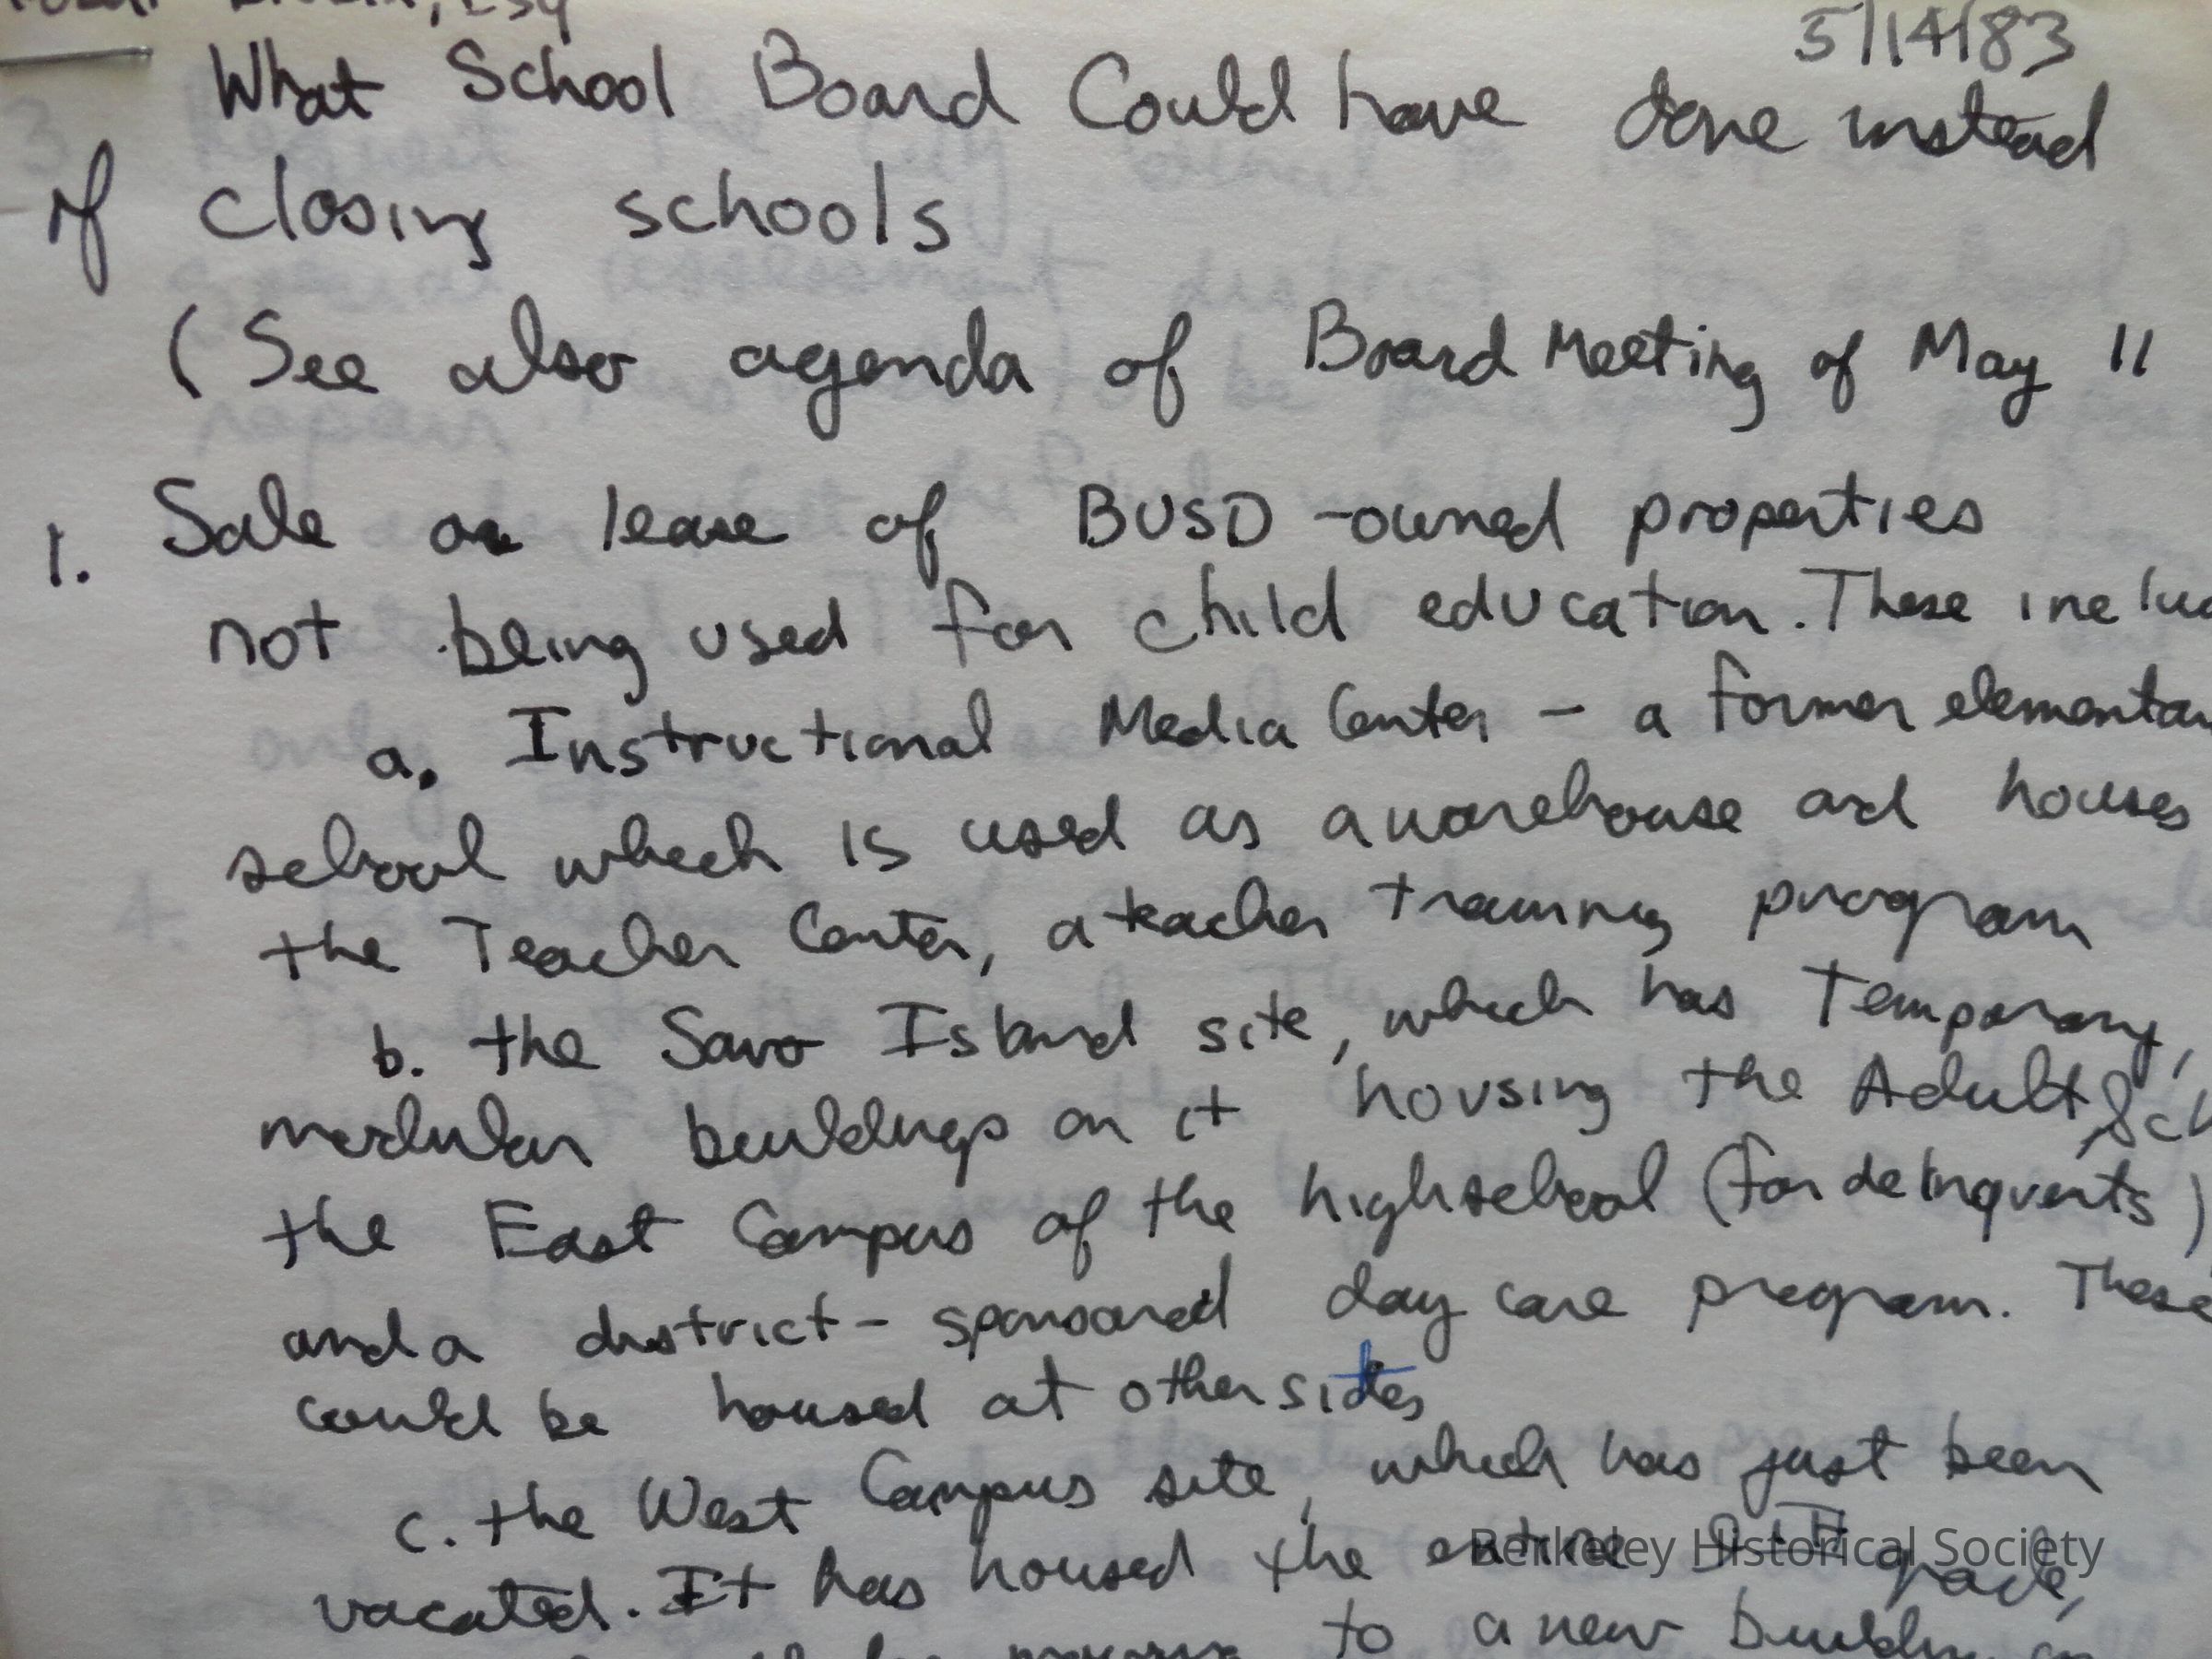 , Esq
5/14/83
What School Board Could have done instead
of closing schools
(See also agenda of Board Meeting of May 11
1. Sale or lease of BUSD-owned properties
not being used for child education. These inclu
a. Instructional Media Center - a former elementar
school which is used as a warehouse and houses
the Teacher Center, a teacher training program
b. the Savo Island site, which has Temporary,
modular buildings on it housing the Adult Sch
the East Campus of the highschool (for delinquents)
and a district-sponsored day care program. These
could be housed at other sites
c. the West Campus site, which has just been
vacated. It has housed the entire 9th grade,
moving to a new building on
Berkeley Historical Society